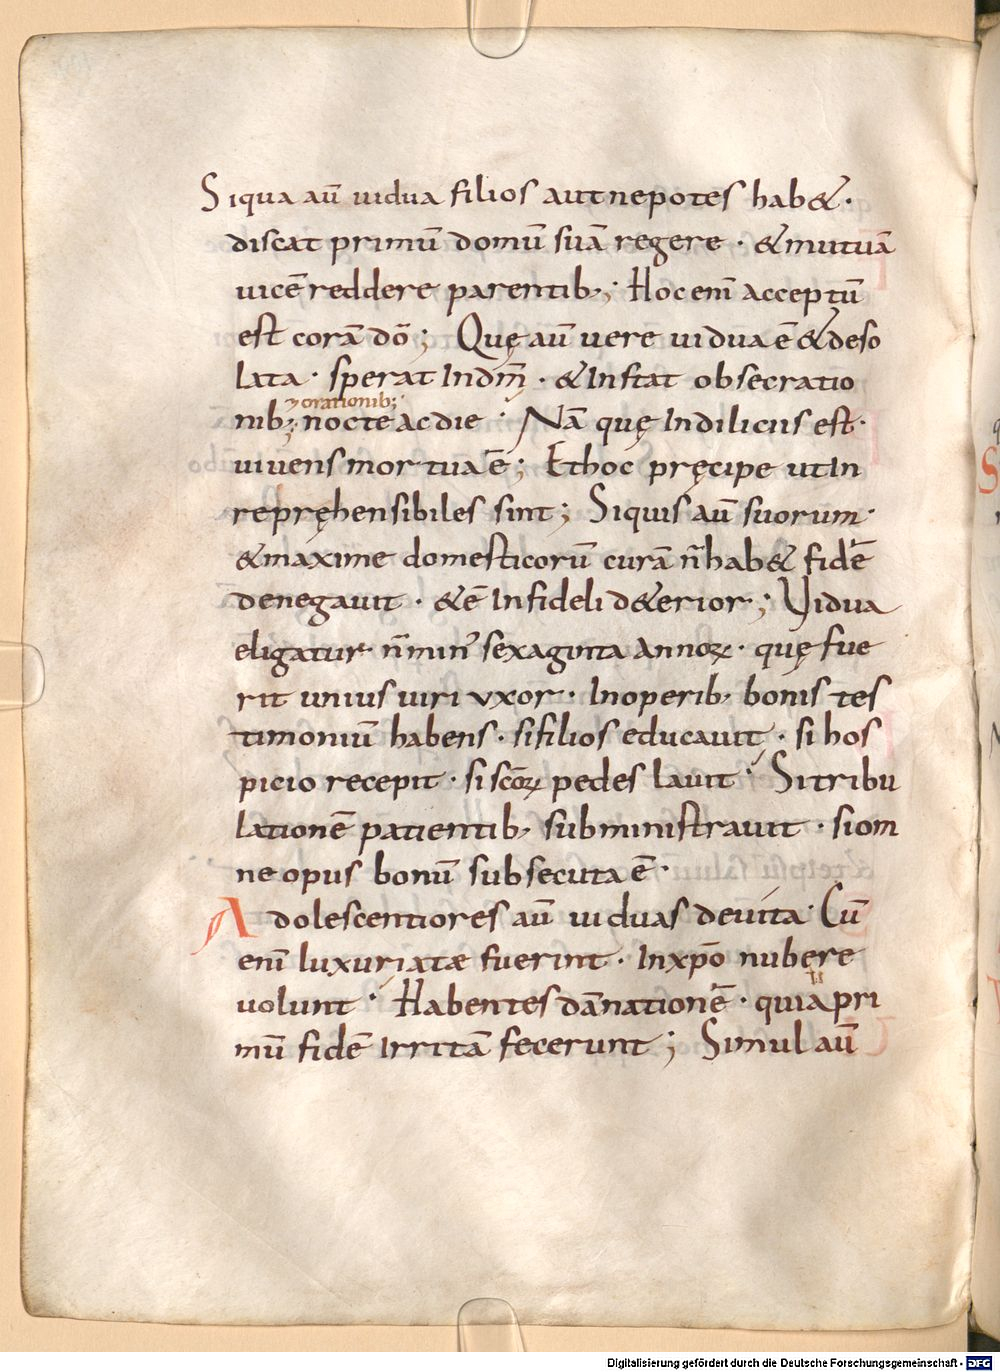 Siqua aū uidua filios aut nepotes hab&·
discat primū domū suā regere · & mutuā
uicē reddere parentib; Hoc enī acceptū
est corā dō; Quę aū uere uidua ē & deso
lata · sperat In dm̄ · & Instat obsecratio
⁊ orationib;
nib; nocte ac die · Nā quę In diliciis est·
uiuens mortua ē; Et hoc pręcipe ut In
repręhensibiles sint; Siquis aū suorum·
& maxime domesticorū curā n̄ hab& fidē
denegauit · & ē Infideli d&erior; Vidua
eligatur n̄ min᾽ sexaginta annoꝝ · quę fue
rit unius uiri uxor · In operib; bonis tes
timoniū habens · si filios educauit · si hos
picio recepit · si scōꝝ pedes lauit · Si tribu
lationē patientib; subministrauit · si om
ne opus bonū subsecuta ē·
Adolescentiores aū uiduas deuita· Cū
enī luxuriatæ fuerint · In xp̄o nubere
uolunt · Habentes dānationē · quia pri
mū fidē Irritā fecerunt; Simul aū
Digitalisierung gefördert durch die Deutsche Forschungsgemeinschaft - DFG